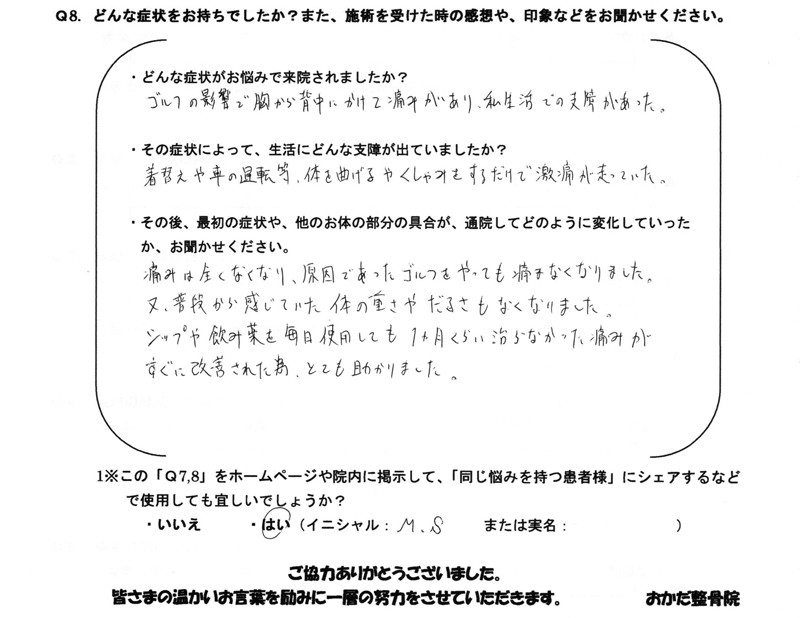 Q8. どんな症状をお持ちでしたか？また、施術を受けた時の感想や、印象などをお聞かせください。
・どんな症状がお悩みで来院されましたか？
ゴルフの影響で胸から背中にかけて痛みがあり、私生活での支障があった。
・その症状によって、生活にどんな支障が出ていましたか？
着替えや車の運転等、体を曲げるやくしゃみをするだけで激痛が走っていた。
・その後、最初の症状や、他のお体の部分の具合が、通院してどのように変化していった
か、お聞かせください。
痛みは全くなくなり、原因であったゴルフをやっても痛まなくなりました。
又、普段から感じていた体の重さやだるさもなくなりました。
シップや飲み薬を毎日使用しても1ヵ月くらい治らなかった痛みが
すぐに改善された為、とても助かりました。
1※この「Q7,8」をホームページや院内に掲示して、「同じ悩みを持つ患者様」にシェアするなど
で使用しても宜しいでしょうか？
・いいえ ・はい（イニシャル： M、S または実名： ）
ご協力ありがとうございました。
皆さまの温かいお言葉を励みに一層の努力をさせていただきます。 おかだ整骨院